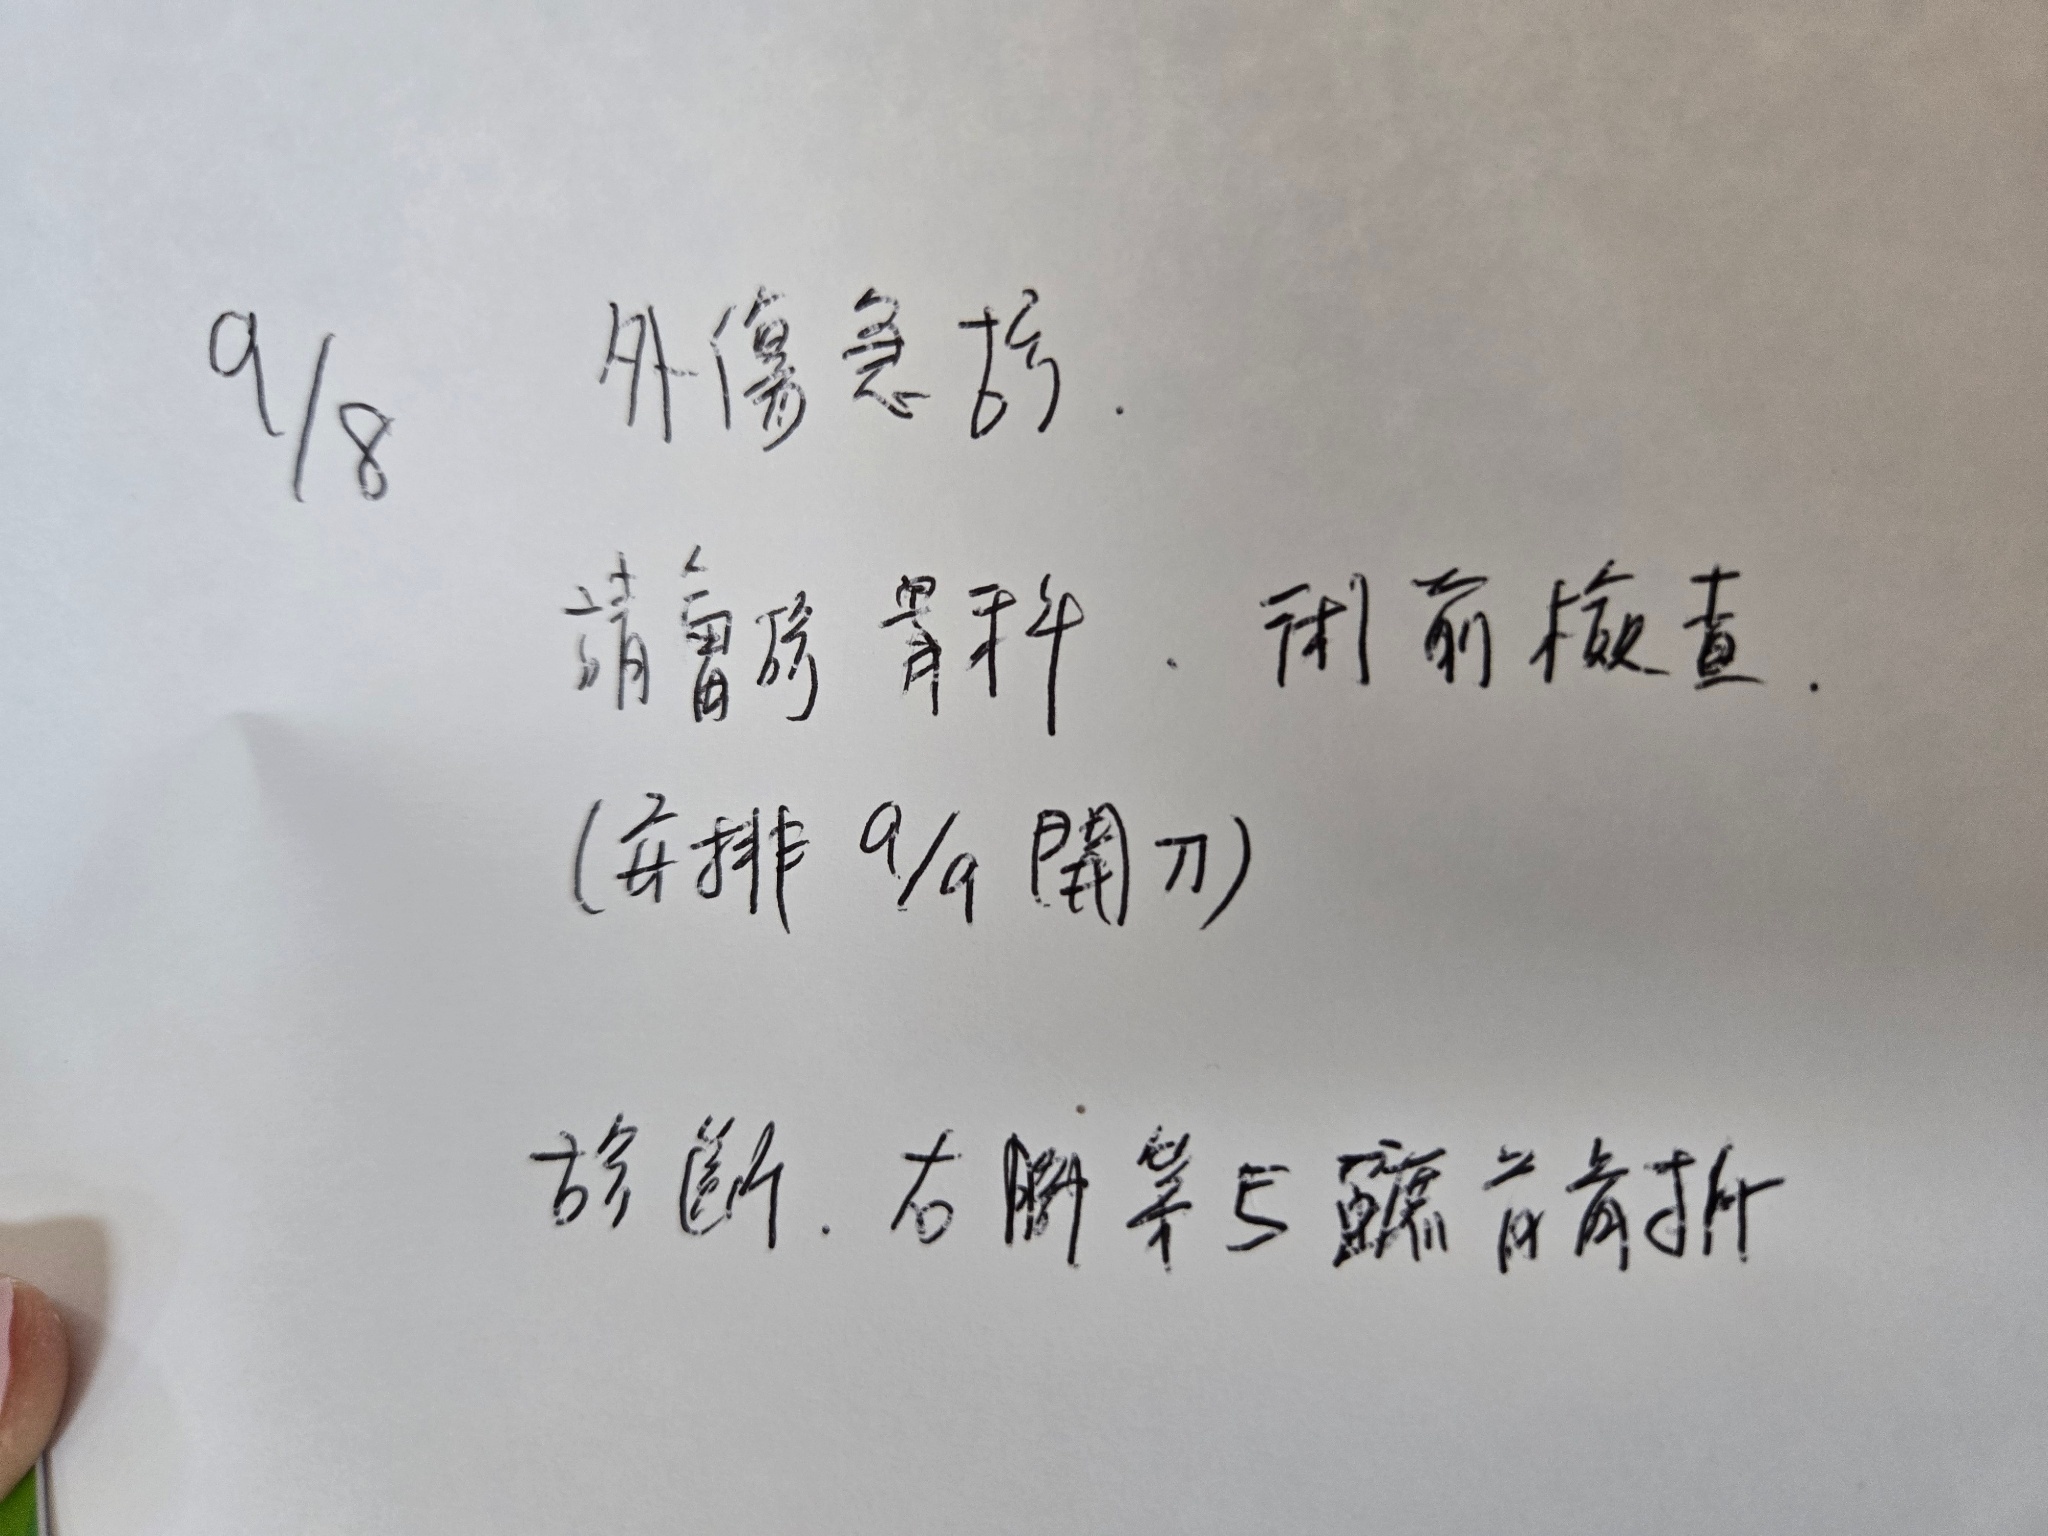 9/8 外傷急診.
請會診骨科. 術前檢查.
(安排 9/9 開刀)
診斷. 右腳第5蹠骨骨折